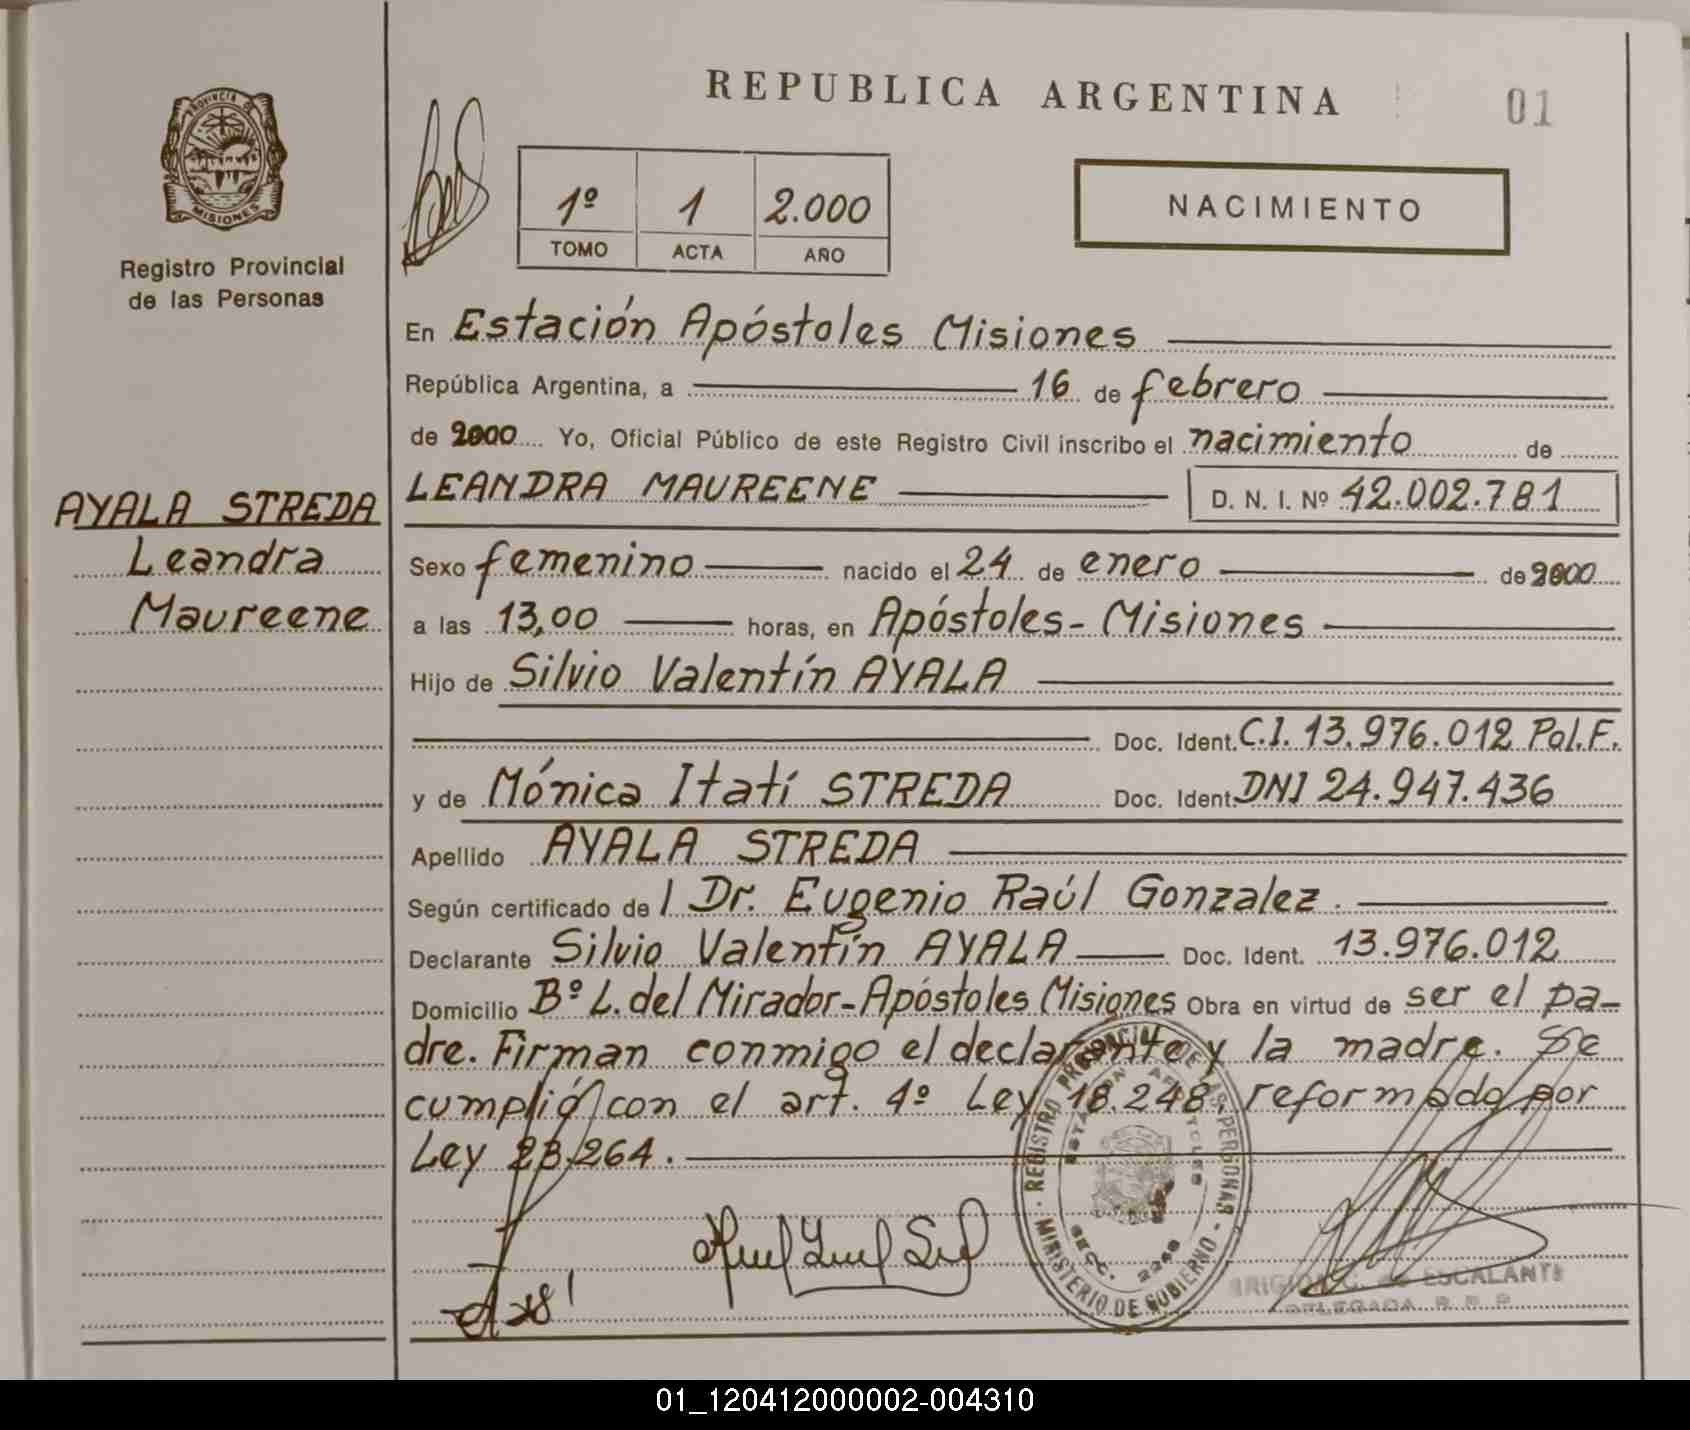 REPUBLICA ARGENTINA
01
PROVINCIA DE
MISIONES
Registro Provincial
de las Personas
1º 1 2.000
TOMO ACTA AÑO
NACIMIENTO
En Estación Apóstoles Misiones
República Argentina, a 16 de febrero
de 2000 Yo, Oficial Público de este Registro Civil inscribo el nacimiento de
LEANDRA MAUREENE D. N. I. Nº 42.002.781
AYALA STREDA
Leandra
Maureene
Sexo femenino nacido el 24 de enero de 2000
a las 13,00 horas, en Apóstoles - Misiones
Hijo de Silvio Valentín AYALA
Doc. Ident. C.I. 13.976.012 Pol.F.
y de Mónica Itatí STREDA Doc. Ident. DNI 24.947.436
Apellido AYALA STREDA
Según certificado de l Dr. Eugenio Raúl Gonzalez.
Declarante Silvio Valentín AYALA Doc. Ident. 13.976.012
Domicilio Bº L. del Mirador - Apóstoles Misiones Obra en virtud de ser el pa-
dre. Firman conmigo el declarante y la madre. Se
cumplió con el art. 4º Ley 18.248, reformado por
Ley 23.264.
REGISTRO PROVINCIAL DE LAS PERSONAS
MINISTERIO DE GOBIERNO
ESTACION APOSTOLES
SECC.
ESCALANTE
DELEGADA R. P. P.
01_120412000002-004310